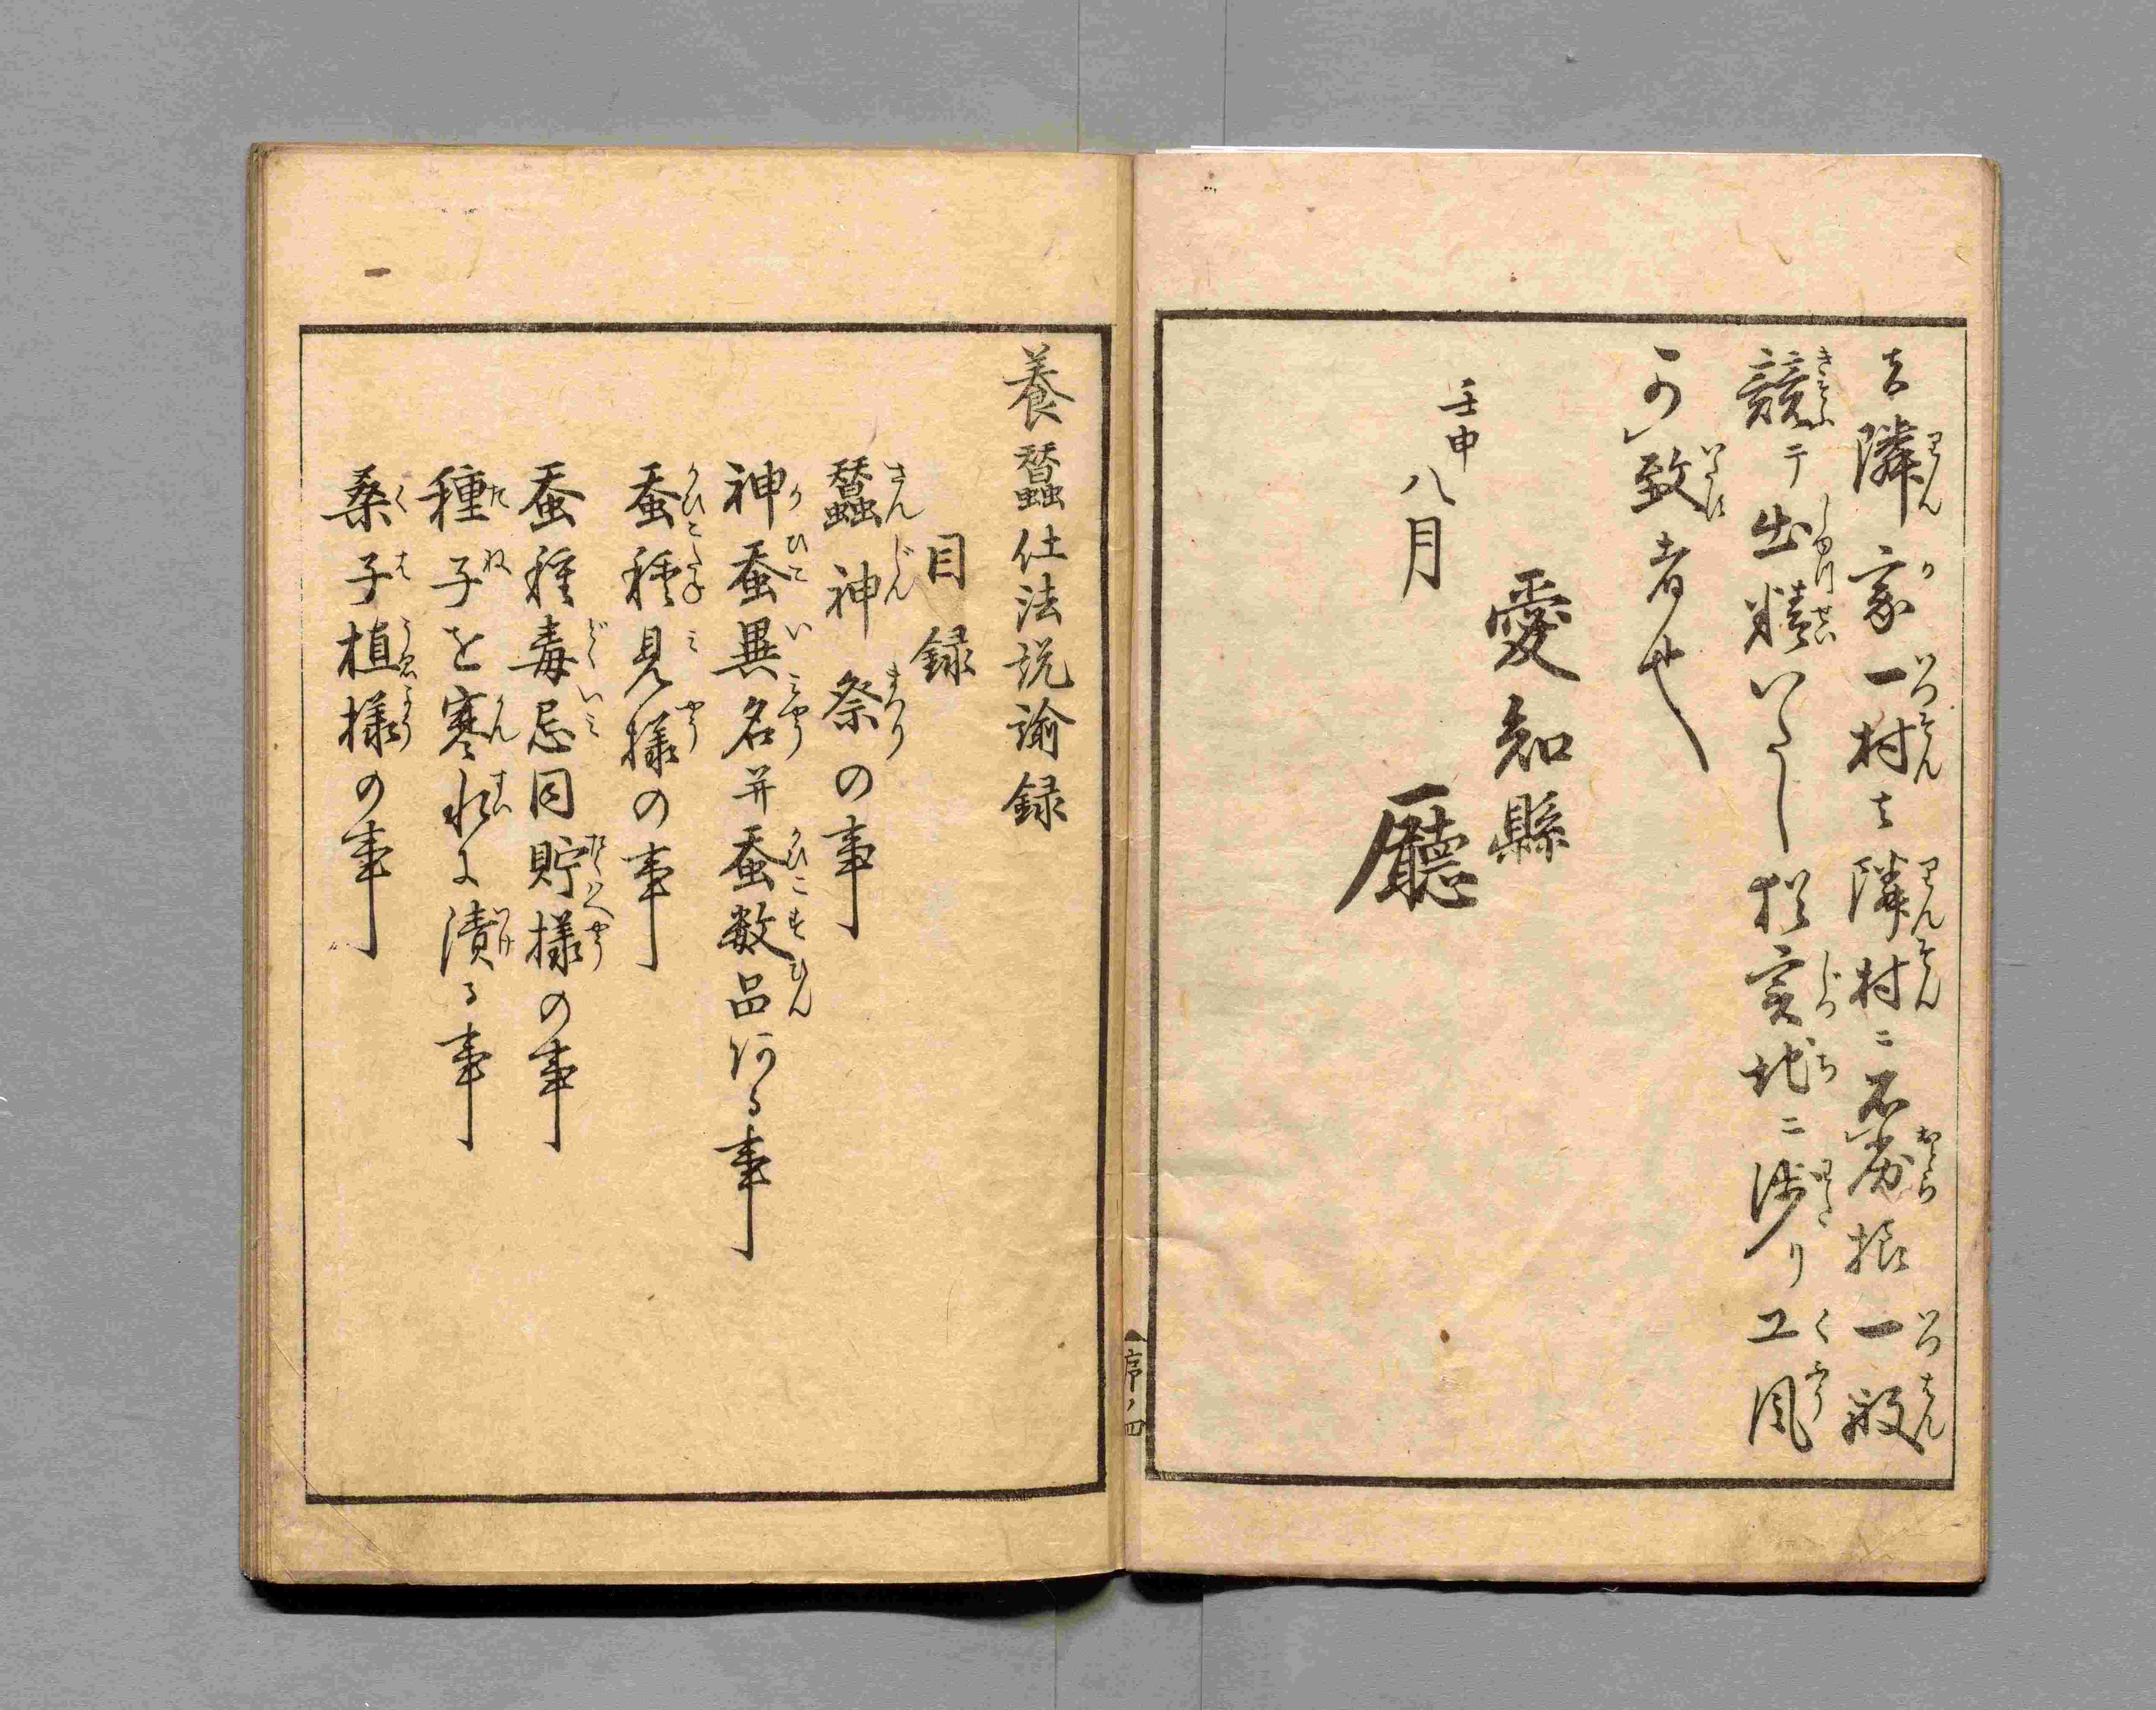 者隣家一村者隣村ニ不劣様一般
競テ出精いたし猶実地ニ渉り工風
可致者也
壬申
八月
愛知縣
廳
序ノ四
養蠶仕法説諭録
目録
蠶神祭の事
神蚕異名并蚕数品ある事
蚕種見様の事
蚕種毒忌同貯様の事
種子を寒水に漬る事
桑子植様の事